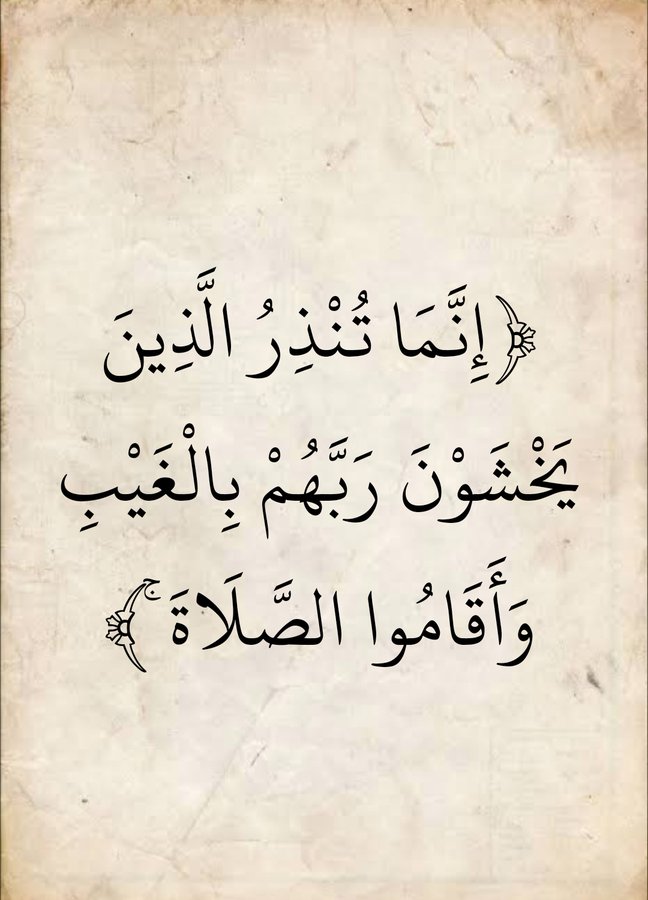 ﴿إِنَّمَا تُنْذِرُ الَّذِينَ
يَخْشَوْنَ رَبَّهُمْ بِالْغَيْبِ
وَأَقَامُوا الصَّلَاةَ ۚ﴾